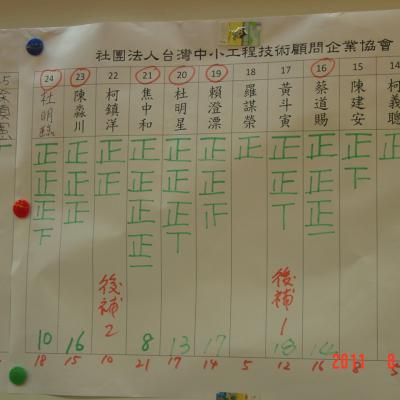 社團法人台灣中小工程技術顧問企業協會
24 23 22 21 20 19 18 17 16 15 14
杜明 陳淼川 柯鎮洋 焦中和 杜明星 賴澄漂 羅謀榮 黃斗寅 蔡道賜 陳建安 柯義聰
正 正 正 正 正 正 正 正 正 正 正
正 正 正 正 正 正 正 正
正 正 正 正 正
正
後補2 後補1
10 16 8 13 17 18 14
18 15 10 21 17 14 5 12 16 8
2011